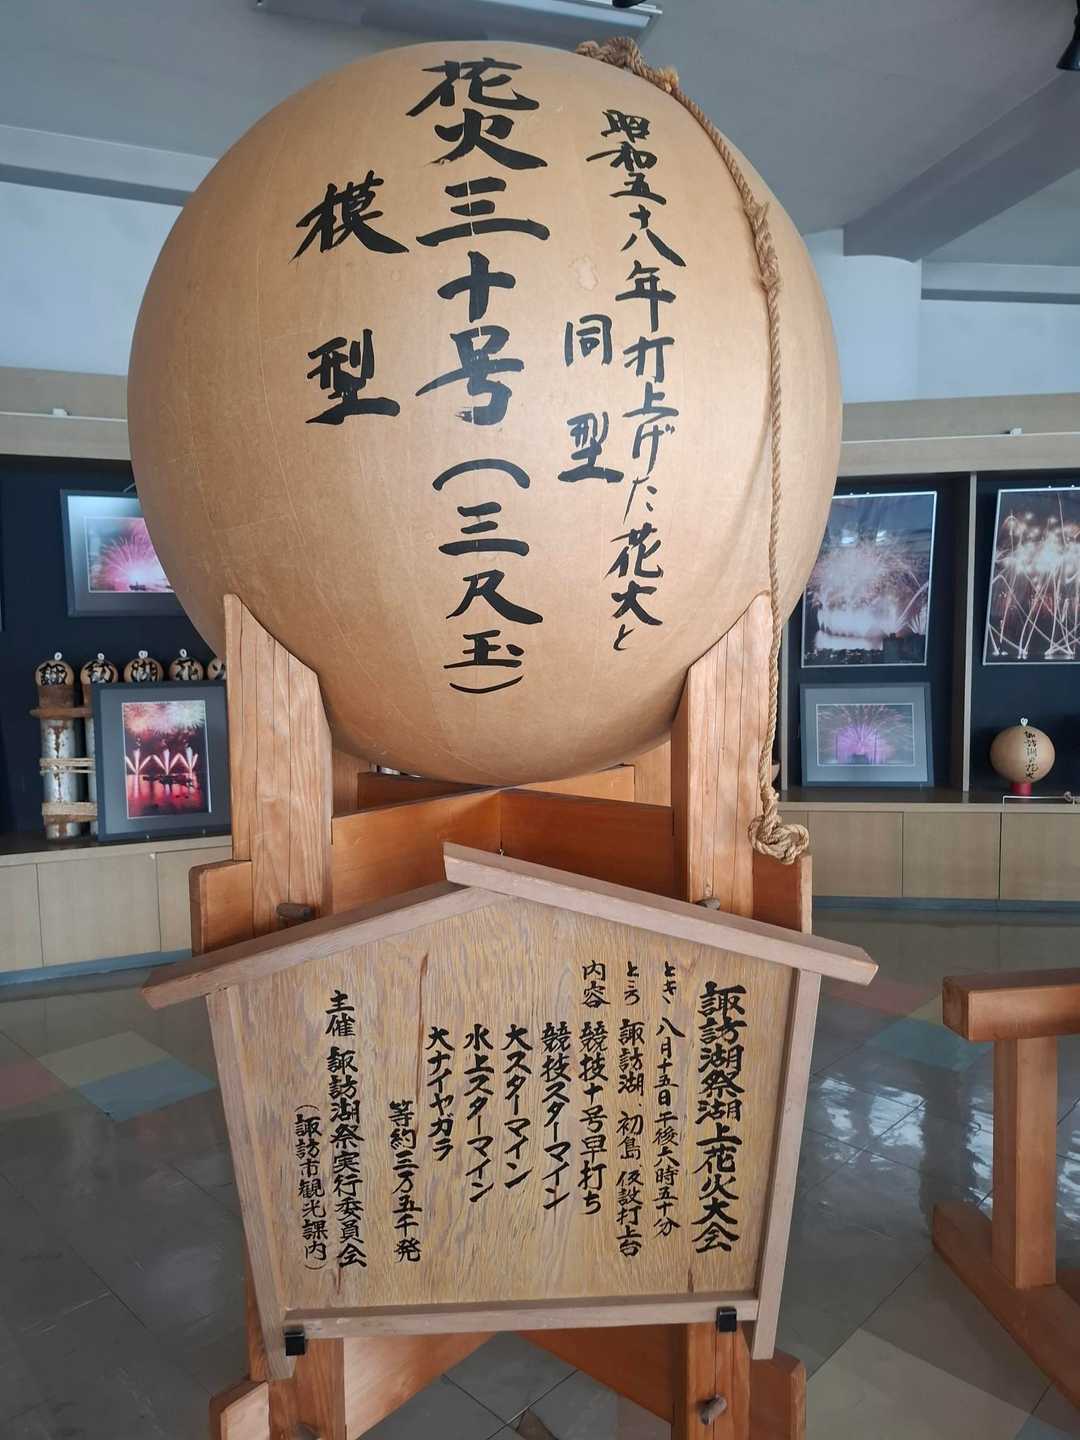 昭和五十八年打上げた花火と
同型
花火三十号(三尺玉)
模型
諏訪湖祭湖上花火大会
とき、八月十五日午後六時五十分
ところ 諏訪湖、初島、仮設打上台
内容 競技十号早打ち
競技スターマイン
大スターマイン
水上スターマイン
大ナイヤガラ
等約三万五千発
主催 諏訪湖祭実行委員会
(諏訪市観光課内)
諏訪湖の花火